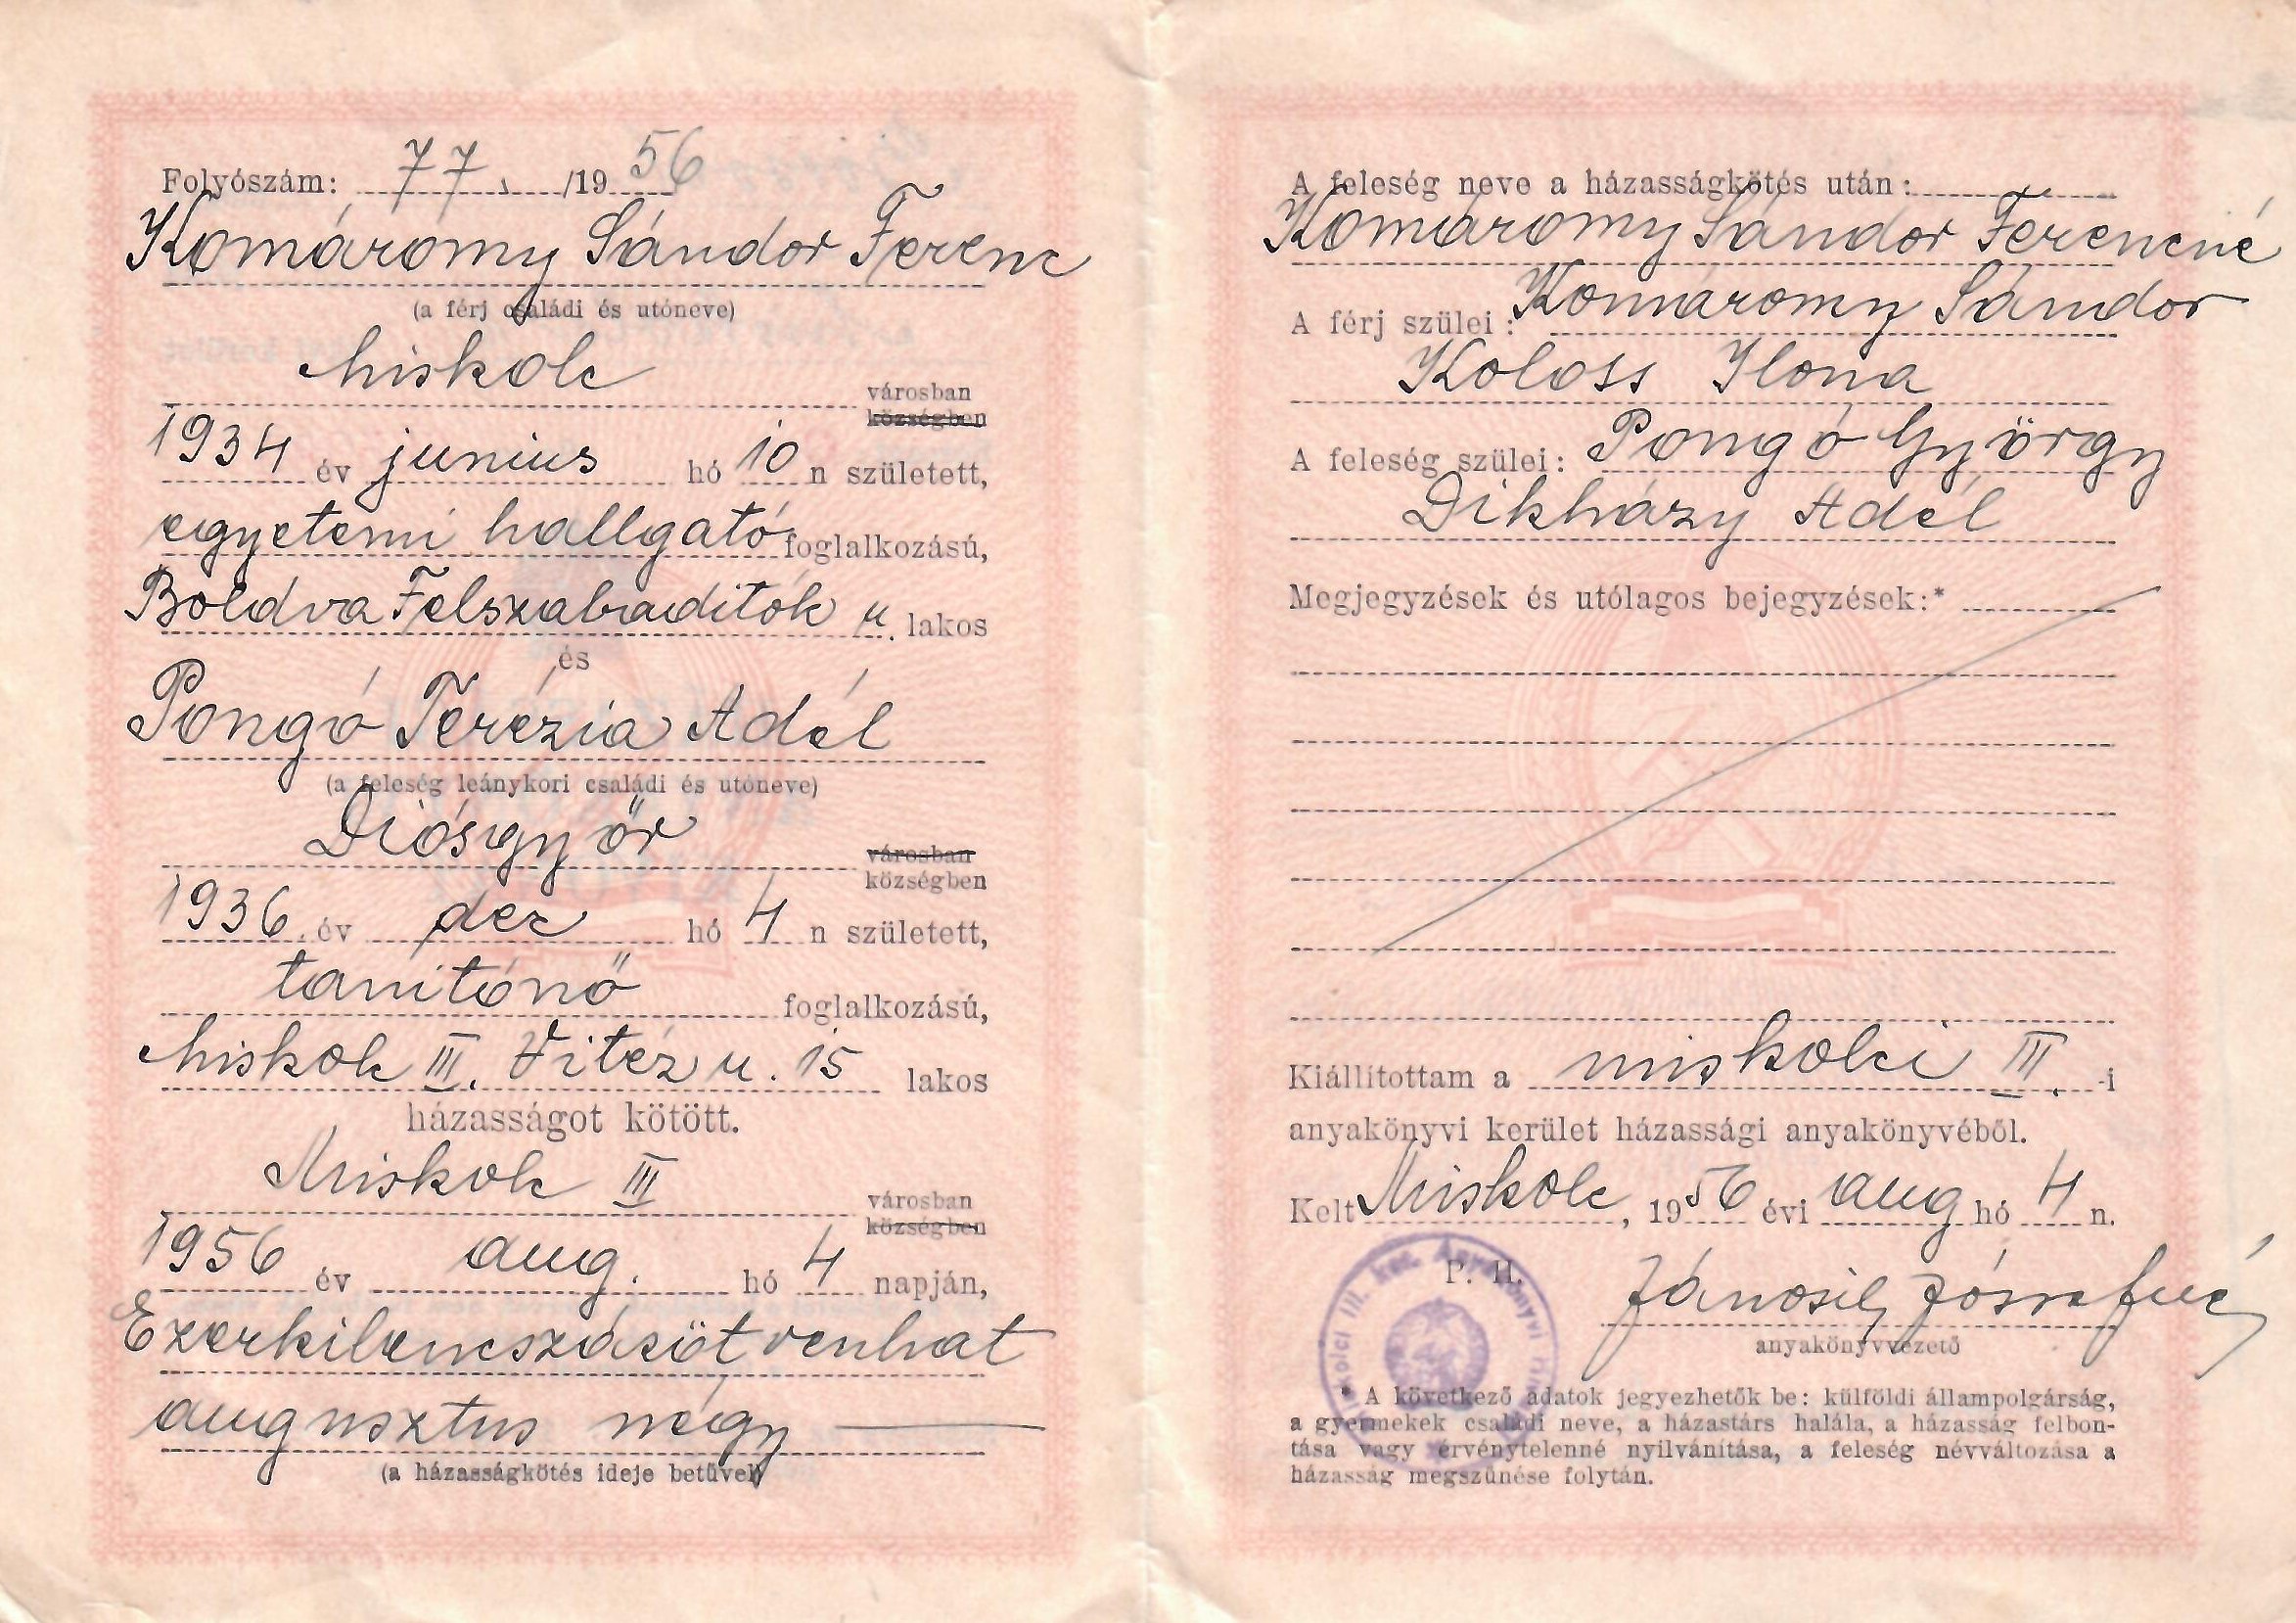 Folyószám: 77. /1956
Komáromy Sándor Ferenc
(a férj családi és utóneve)
Miskolc
városban
községben
1934 év junius hó 10 n született,
egyetemi hallgató foglalkozású,
Boldva Felszabaditók u. lakos
és
Pongó Terézia Adél
(a feleség leánykori családi és utóneve)
Diósgyőr
városban
községben
1936. év dec hó 4 n született,
tanítónő foglalkozású,
Miskolc III. Vitéz u. 15 lakos
házasságot kötött.
Miskolc III
városban
községben
1956 év aug. hó 4 napján,
Ezerkilencszázötvenhat
augusztus négy
(a házasságkötés ideje betűvel)
A feleség neve a házasságkötés után:
Komáromy Sándor Ferencné
A férj szülei: Komáromy Sándor
Koloss Ilona
A feleség szülei: Pongó György
Dikházy Adél
Megjegyzések és utólagos bejegyzések:*
Kiállítottam a miskolci III. -i
anyakönyvi kerület házassági anyakönyvéből.
Kelt Miskolc, 1956 évi aug hó 4 n.
P. H.
anyakönyvvezető
* A következő adatok jegyezhetők be: külföldi állampolgárság,
a gyermekek családi neve, a házastárs halála, a házasság felbon-
tása vagy érvénytelenné nyilvánítása, a feleség névváltozása a
házasság megszűnése folytán.